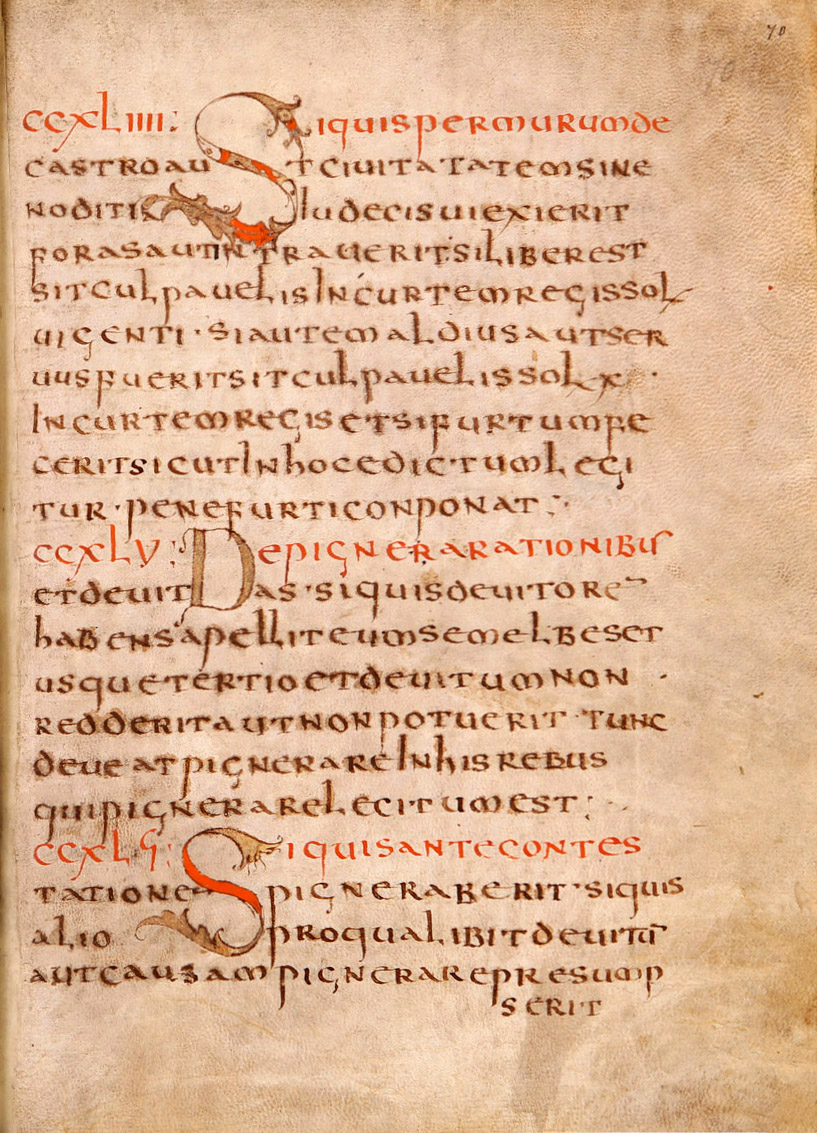 70
CCXLIIII: Siquispermurumde
castroau tciuitatatemsine
noditia Iudecisuiexierit
forasautintraueritsiliberest
sitculpauelisIncurtemregissol
uigenti · siautemaldiusautser
uusfueritsitculpauelissol x ·
Incurtemregisetsifurtumfe
ceritsicutInhocedictumlegi
tur · penefurticonponat :·
CCXLV: Depignerarationibus
etdeuit das · siquisdeuitore
habensapelliteumsemelbeset
usquetertioetdeuitumnon ·
redderitautnonpotuerit · tunc
deueatpignerareInhisrebus
quipignerarelegitumest : ·
CCXLϚ: Siquisantecontes
tatione pigneraberit · siquis
alio proqualibitdeuitū
autcausampignerarepresump
serit